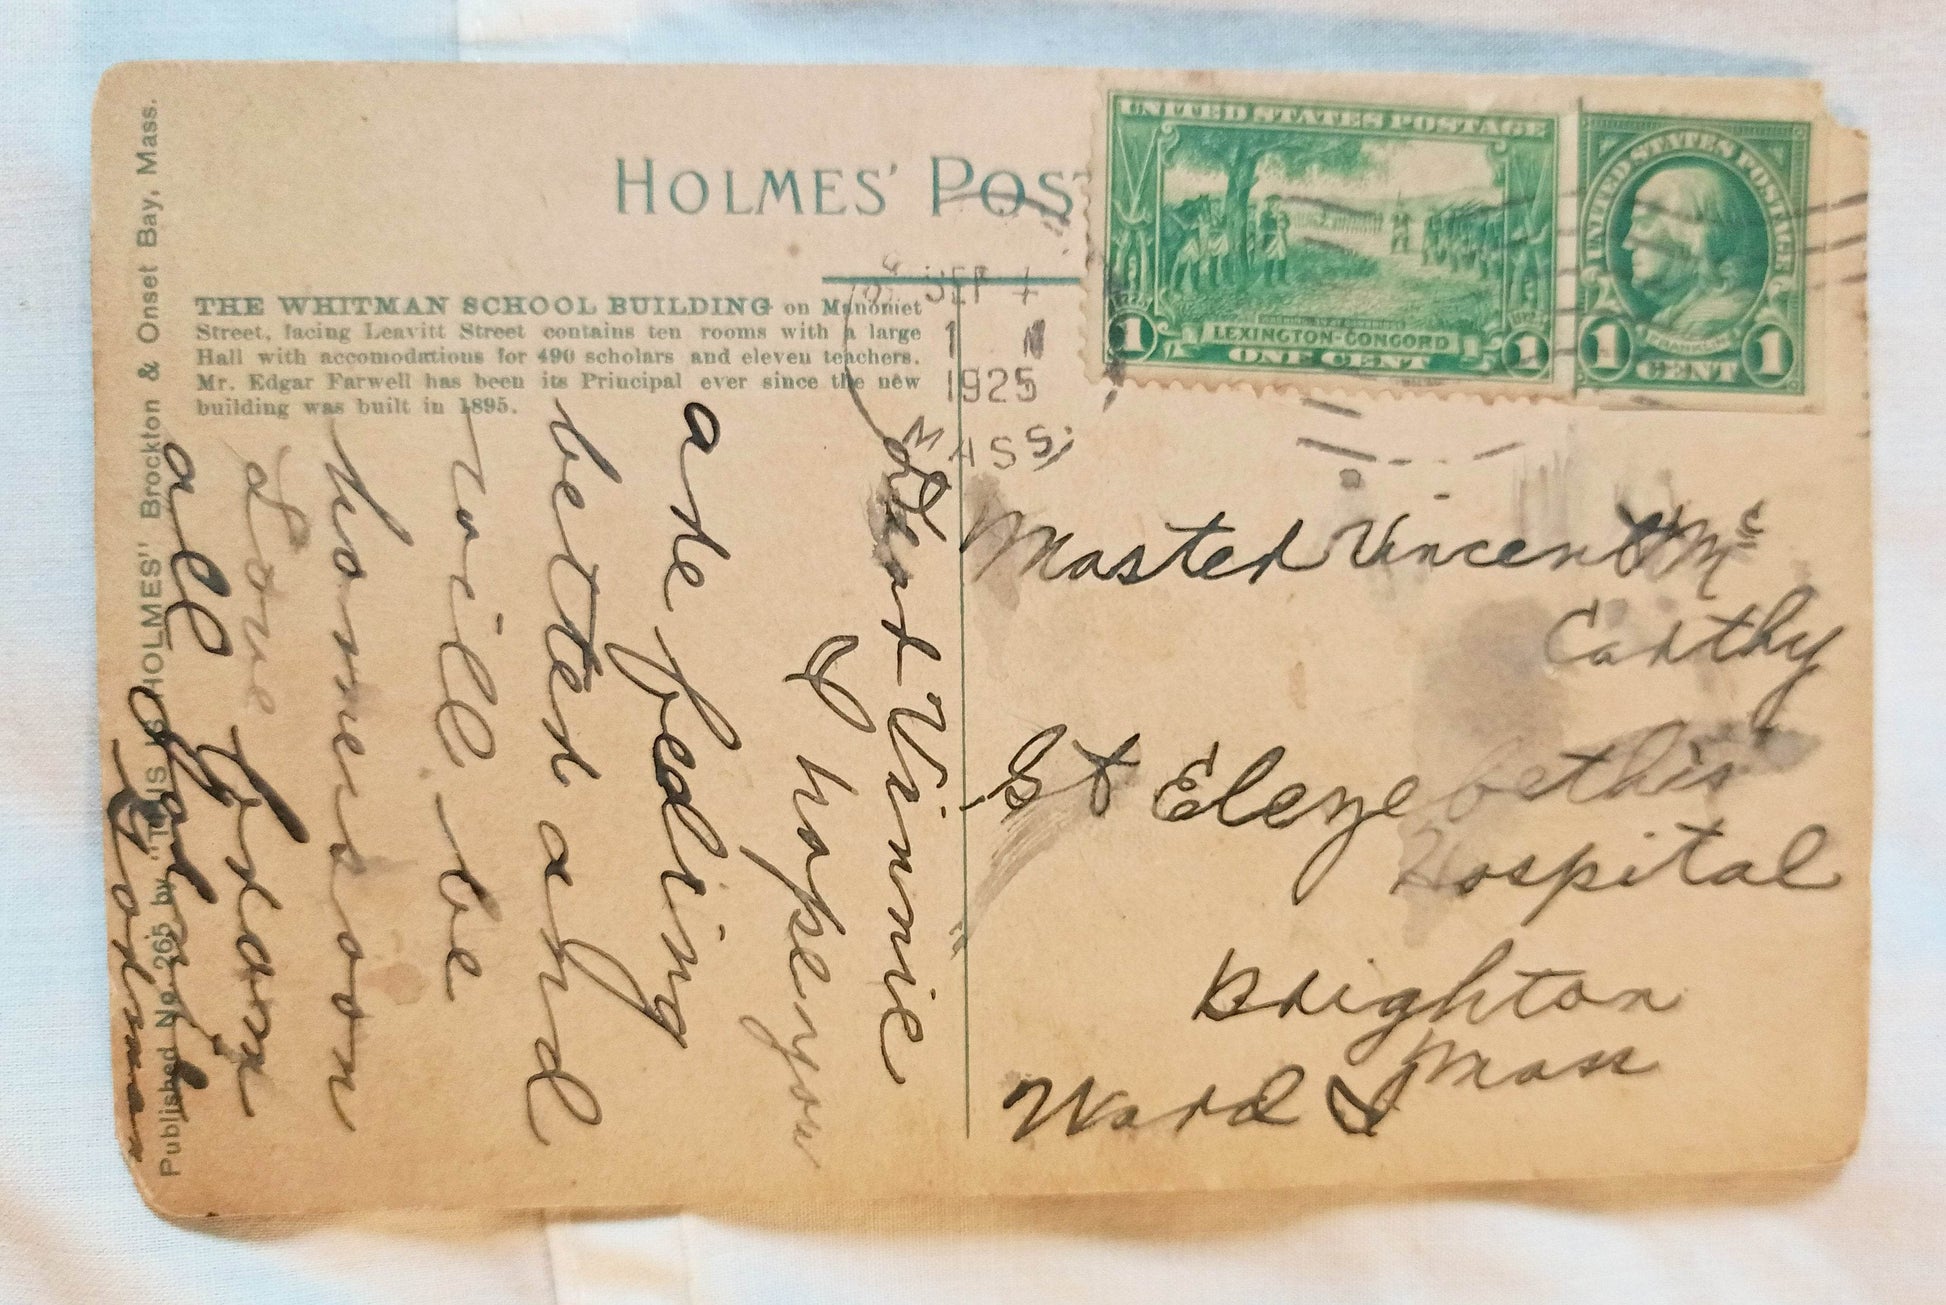 HOLMES' POS
THE WHITMAN SCHOOL BUILDING on Manomet
Street, facing Leavitt Street contains ten rooms with a large
Hall with accomodations for 490 scholars and eleven teachers.
Mr. Edgar Farwell has been its Principal ever since the new
building was built in 1895.
Published No. 265 by "THIS IS HOLMES'" Brockton & Onset Bay, Mass.
SEP
1
1925
MASS.
UNITED STATES POSTAGE
LEXINGTON-CONCORD
1 ONE CENT 1
UNITED STATES POSTAGE
FRANKLIN
1 CENT 1
Dear Vinnie
I hope you
are feeling
better and
will be
home soon
Love from
all
Master Vincent Mc
Carthy
St Elezebethis
Hospital
Brighton
Mass
Ward I